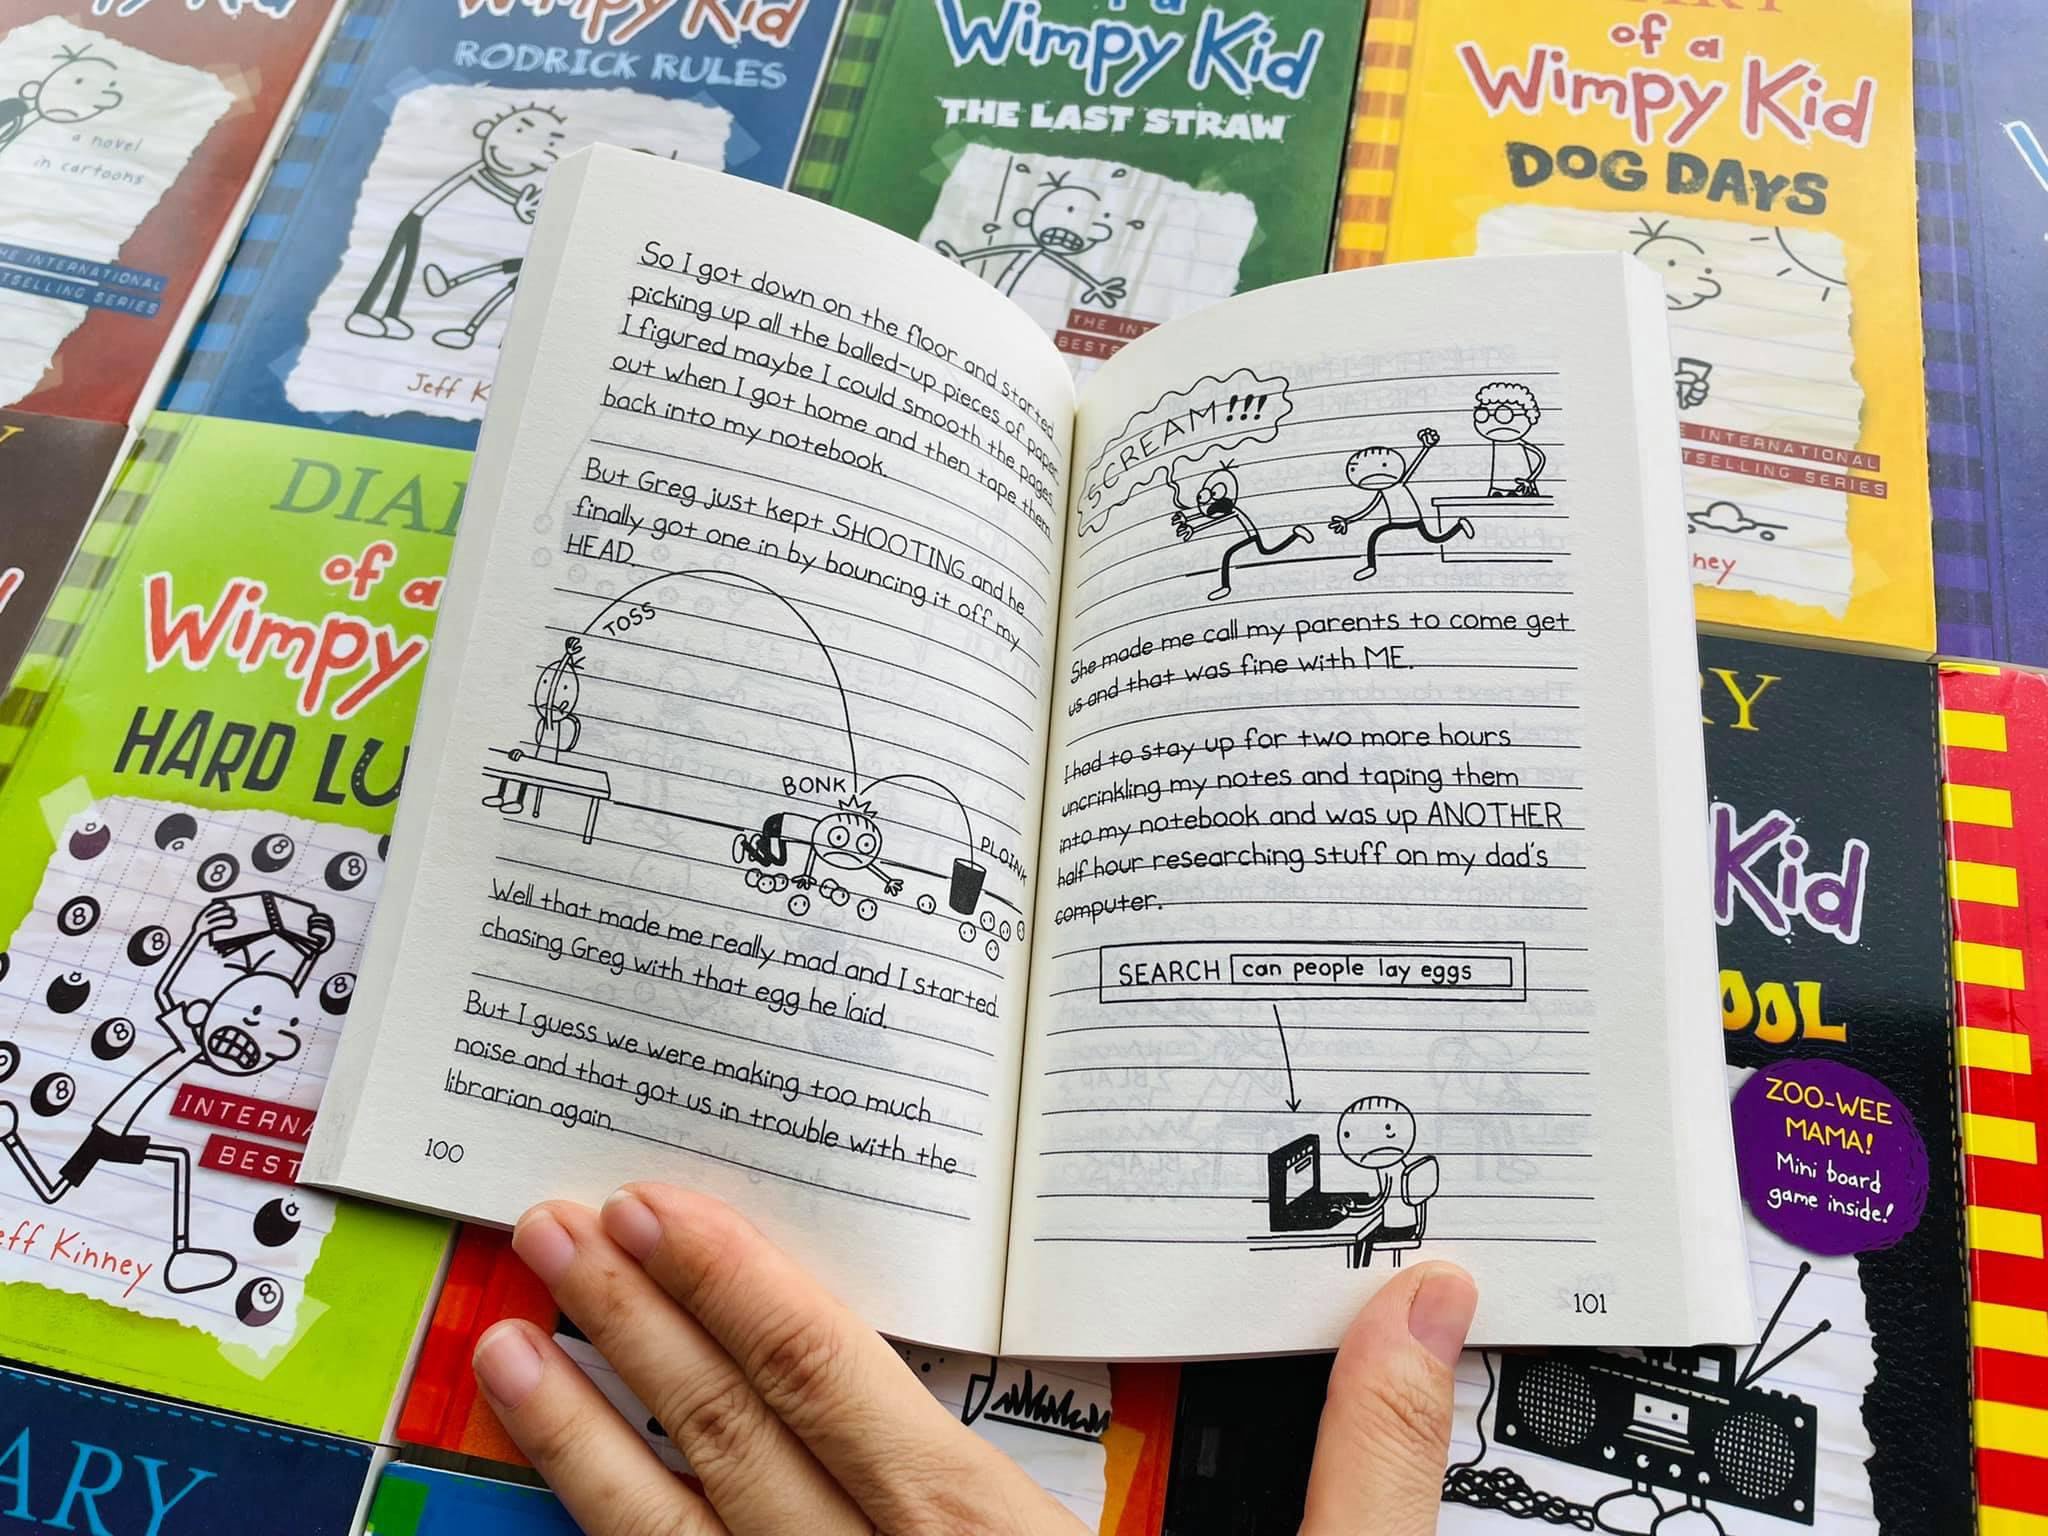 Wimpy Kid
RODRICK RULES
Wimpy Kid
THE LAST STRAW
of a
Wimpy Kid
DOG DAYS
a novel
in cartoons
THE INTERNATIONAL
BESTSELLING SERIES
Jeff K
THE INT
BESTS
INTERNATIONAL
TSELLING SERIES
ney
DIA
of a
Wimpy
HARD LU
8
8
8
8
8
8
8
8
8
INTERNA
BEST
eff Kinney
ARY
So I got down on the floor and started
picking up all the balled-up pieces of paper.
I figured maybe I could smooth the pages
out when I got home and then tape them
back into my notebook.
But Greg just kept SHOOTING and he
finally got one in by bouncing it off my
HEAD.
TOSS
BONK
PLOINK
Well that made me really mad and I started
chasing Greg with that egg he laid.
But I guess we were making too much
noise and that got us in trouble with the
librarian again.
100
SCREAM!!!
She made me call my parents to come get
us and that was fine with ME.
I had to stay up for two more hours
uncrinkling my notes and taping them
into my notebook and was up ANOTHER
half hour researching stuff on my dad's
computer.
SEARCH can people lay eggs
101
RY
Kid
OOL
ZOO-WEE
MAMA!
Mini board
game inside!